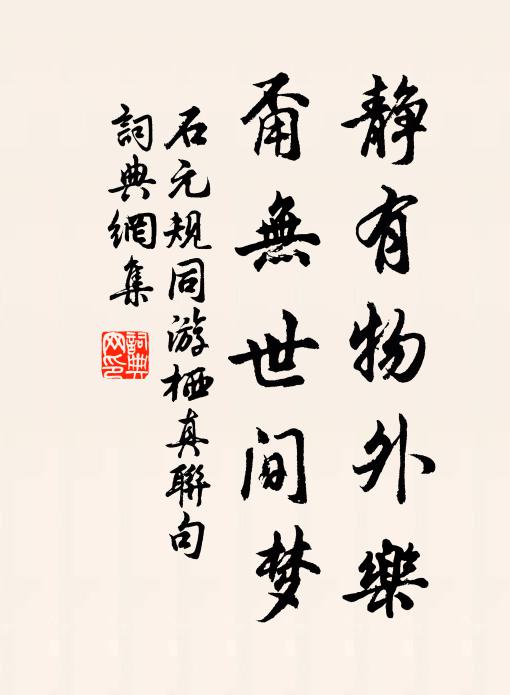 静有物外樂
甭無世间梦
石元规同游栖真聯句
詞典網集
詞典网印